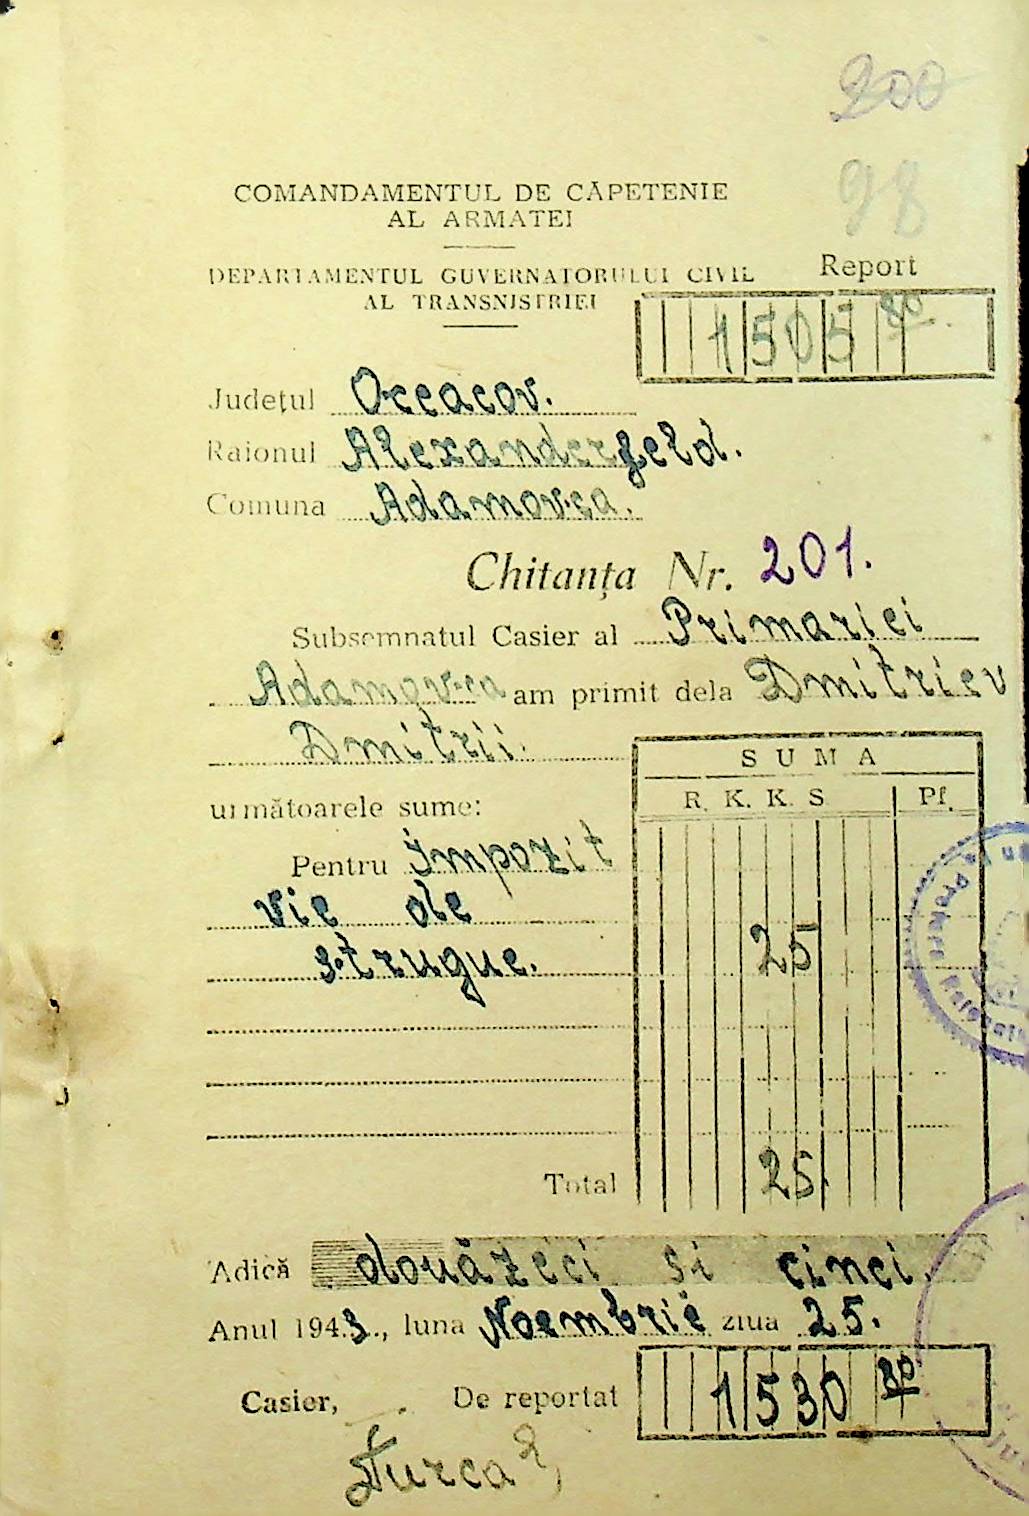 200
98
COMANDAMENTUL DE CĂPETENIE
AL ARMATEI
DEPARTAMENTUL GUVERNATORULUI CIVIL
AL TRANSNISTRIEI
Report
1505 80
Județul Oceacov.
Raionul Alexanderfeld.
Comuna Adamovca.
Chitanța Nr. 201.
Subsemnatul Casier al Primariei
Adamovca am primit dela Dmitriev
Dmitrii.
următoarele sume:
SUMA
R. K. K. S Pf.
Pentru Impozit
vie de
strugue. 25
Total 25.
Adică douăzeci si cinci.
Anul 1943., luna Noembrie ziua 25.
Casier, De reportat 1530 80